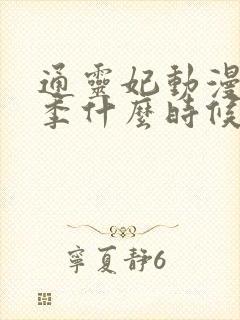 通靈妃動漫
季什麼時候
寧夏靜6